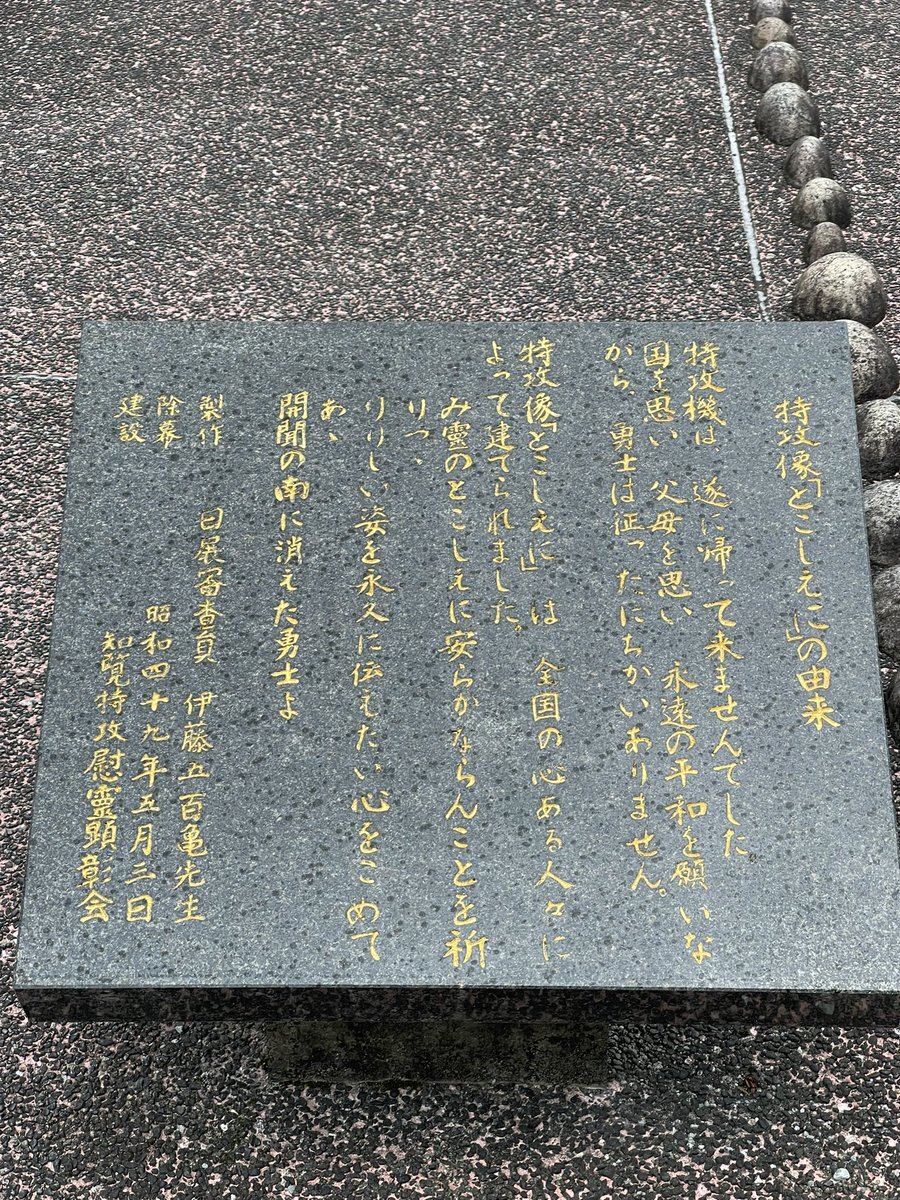 特攻像「とこしえに」の由来
特攻機は、遂に帰って来ませんでした。
国を思い 父母を思い 永遠の平和を願いな
がら、勇士は征ったにちがいありません。
特攻像「とこしえに」は 全国の心ある人々に
よって建てられました。
み霊のとこしえに安らかならんことを祈
りつゝ
りりしい姿を永久に伝えたい心をこめて
あゝ
開聞の南に消えた勇士よ
製作 日展審査員 伊藤五百亀先生
除幕 昭和四十九年五月三日
建設 知覧特攻慰霊顕彰会